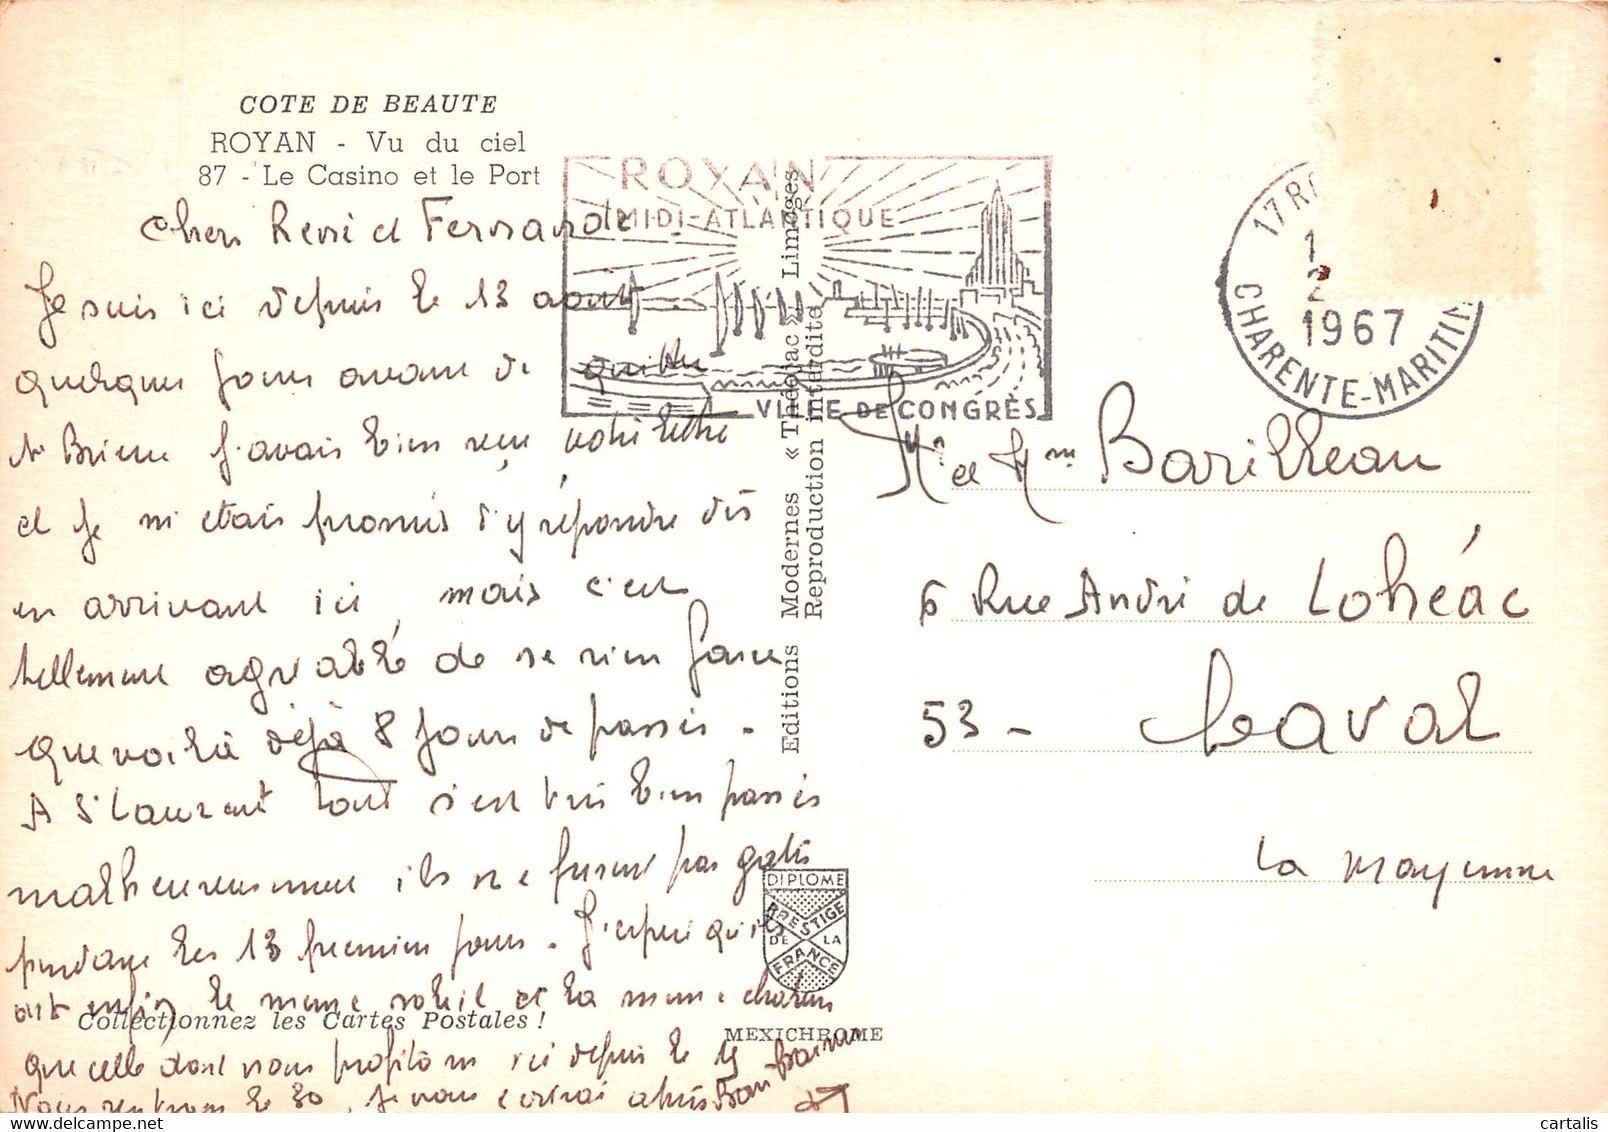 COTE DE BEAUTE
ROYAN - Vu du ciel
87 - Le Casino et le Port
Chers René et Fernande
Je suis ici depuis le 13 aout
quelques jours avant de quitter
St Brieuc j'avais bien reçu votre lettre
et je m'etais promis d'y répondre dès
en arrivant ici, mais c'est
tellement agréable de ne rien faire
que voilà déjà 8 jours de passés.
A St Laurent tout s'est très bien passés
malheureusement ils ne furent pas gatés
pendant les 13 premiers jours. J'espère qu'ils
ont enfin le meme soleil et la meme chaleur
que celle dont nous profitons ici depuis le 15
Nous rentrons le 30, je vous écrirai
Collectionnez les Cartes Postales !
Editions Modernes « Théojac » Limoges
Reproduction interdite
DIPLOME
PRESTIGE
DE LA
FRANCE
MEXICHROME
ROYAN
MIDI-ATLANTIQUE
VILLE DE CONGRÈS
17 RO
1
2
1967
CHARENTE-MARITIM
Mr et Mme Barilleau
6 Rue André de Lohéac
53 - Laval
La Mayenne
cartalis